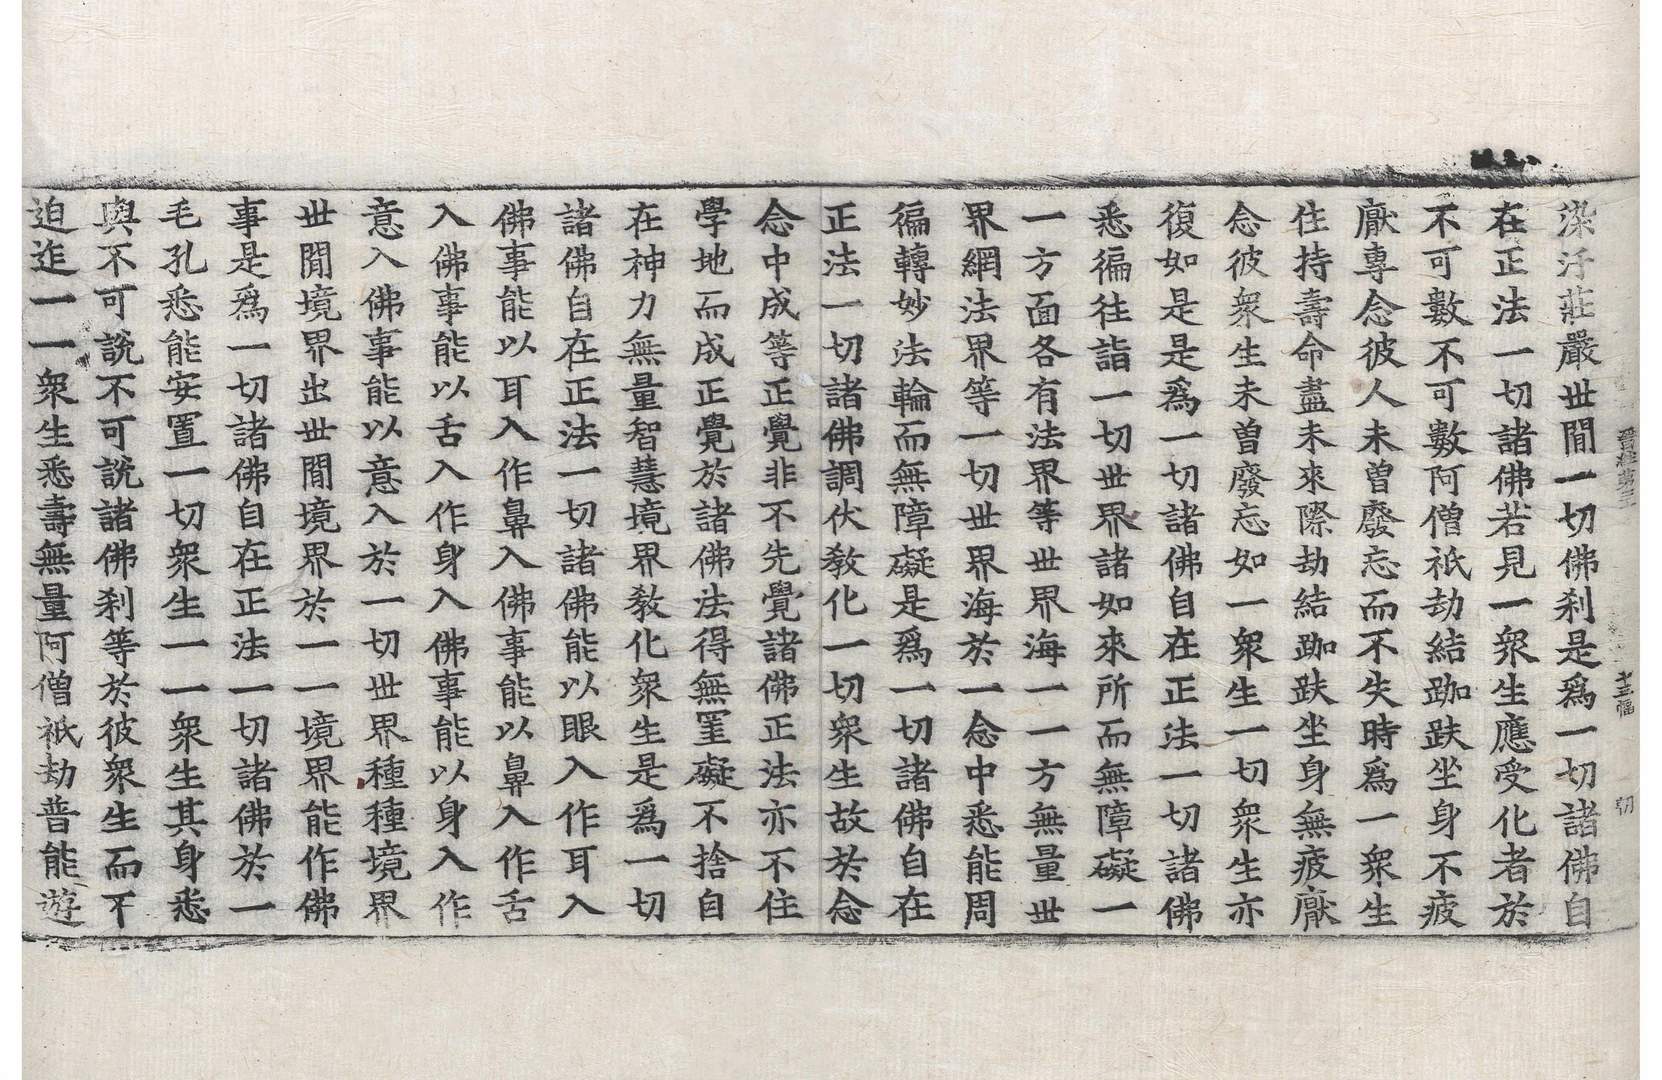 染汙莊嚴世間一切佛刹是爲一切諸佛自
在正法一切諸佛若見一衆生應受化者於
不可數不可數阿僧祇劫結跏趺坐身不疲
厭專念彼人未曾廢忘而不失時爲一衆生
住持壽命盡未來際劫結跏趺坐身無疲厭
念彼衆生未曾廢忘如一衆生一切衆生亦
復如是是爲一切諸佛自在正法一切諸佛
悉徧往詣一切世界諸如來所而無障礙一
一方面各有法界等世界海一一方無量世
界網法界等一切世界海於一念中悉能周
徧轉妙法輪而無障礙是爲一切諸佛自在
正法一切諸佛調伏教化一切衆生故於念
念中成等正覺非不先覺諸佛正法亦不住
學地而成正覺於諸佛法得無罣礙不捨自
在神力無量智慧境界教化衆生是爲一切
諸佛自在正法一切諸佛能以眼入作耳入
佛事能以耳入作鼻入佛事能以鼻入作舌
入佛事能以舌入作身入佛事能以身入作
意入佛事能以意入於一切世界種種境界
世閒境界出世閒境界於一一境界能作佛
事是爲一切諸佛自在正法一切諸佛於一
毛孔悉能安置一切衆生一一衆生其身悉
與不可說不可說諸佛刹等於彼衆生而不
迫迮一一衆生悉壽無量阿僧祇劫普能遊